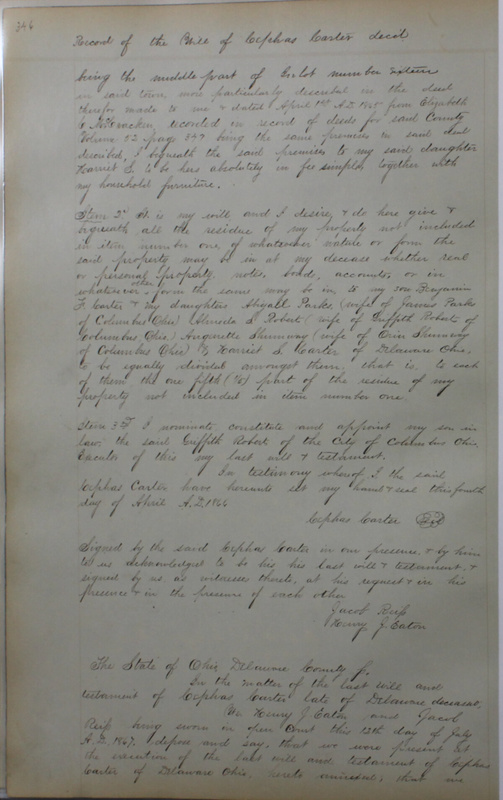 346
Record of the Will of Cephas Carter decd
being the middle part of Inlot number sixteen
in said town, more particularly described in the deed
therefor made to me & dated April 1st A.D. from Elizabeth
McCracken, recorded in record of deeds for said County
Volume 52 page 347 being the same premises in said deed
described, I bequeath the said premises to my said daughter
Harriet S. to be hers absolutely in fee simple, together with
my household furniture.
Item 2d It is my will, and I desire, & do here give &
bequeath all the residue of my property not included
in item number one, of whatever nature or form the
said property may be in at my decease whether real
or personal property, notes, bond, accounts, or in
whatsoever other form the same may be in, to my son Benjamin
F. Carter & my daughters Abigall Parks (wife of Parks
of Columbus Ohio) Almeda S. Robert (wife of Griffith Robert of
Columbus Ohio) Shumway (wife of Orin Shumway
of Columbus Ohio) & Harriet S. Carter of Delaware Ohio,
to be equally divided amongst them, that is, to each
of them the one fifth (1/5) part of the residue of my
property not included in item number one.
Item 3d I nominate constitute and appoint my son in
law, the said Griffith Robert of the City of Columbus Ohio
Executor of this my last will & testament.
In testimony whereof I the said
Cephas Carter have hereunto set my hand & seal this fourth
day of April A.D. 1866
Cephas Carter Seal
Signed by the said Cephas Carter in our presence, & by him
to us acknowledged to be his last will & testament, &
signed by us as witnesses thereto, at his request & in his
presence & in the presence of each other
Jacob
Henry J. Eaton
The State of Ohio Delaware County ss.
In the matter of the last will and
testament of Cephas Carter late of Delaware deceased.
We Henry J. Eaton and Jacob
being sworn in open Court this 12th day of July
A.D. 1867, depose and say, that we were present at
the execution of the last will and testament of Cephas
Carter of Delaware Ohio, hereto annexed; that we